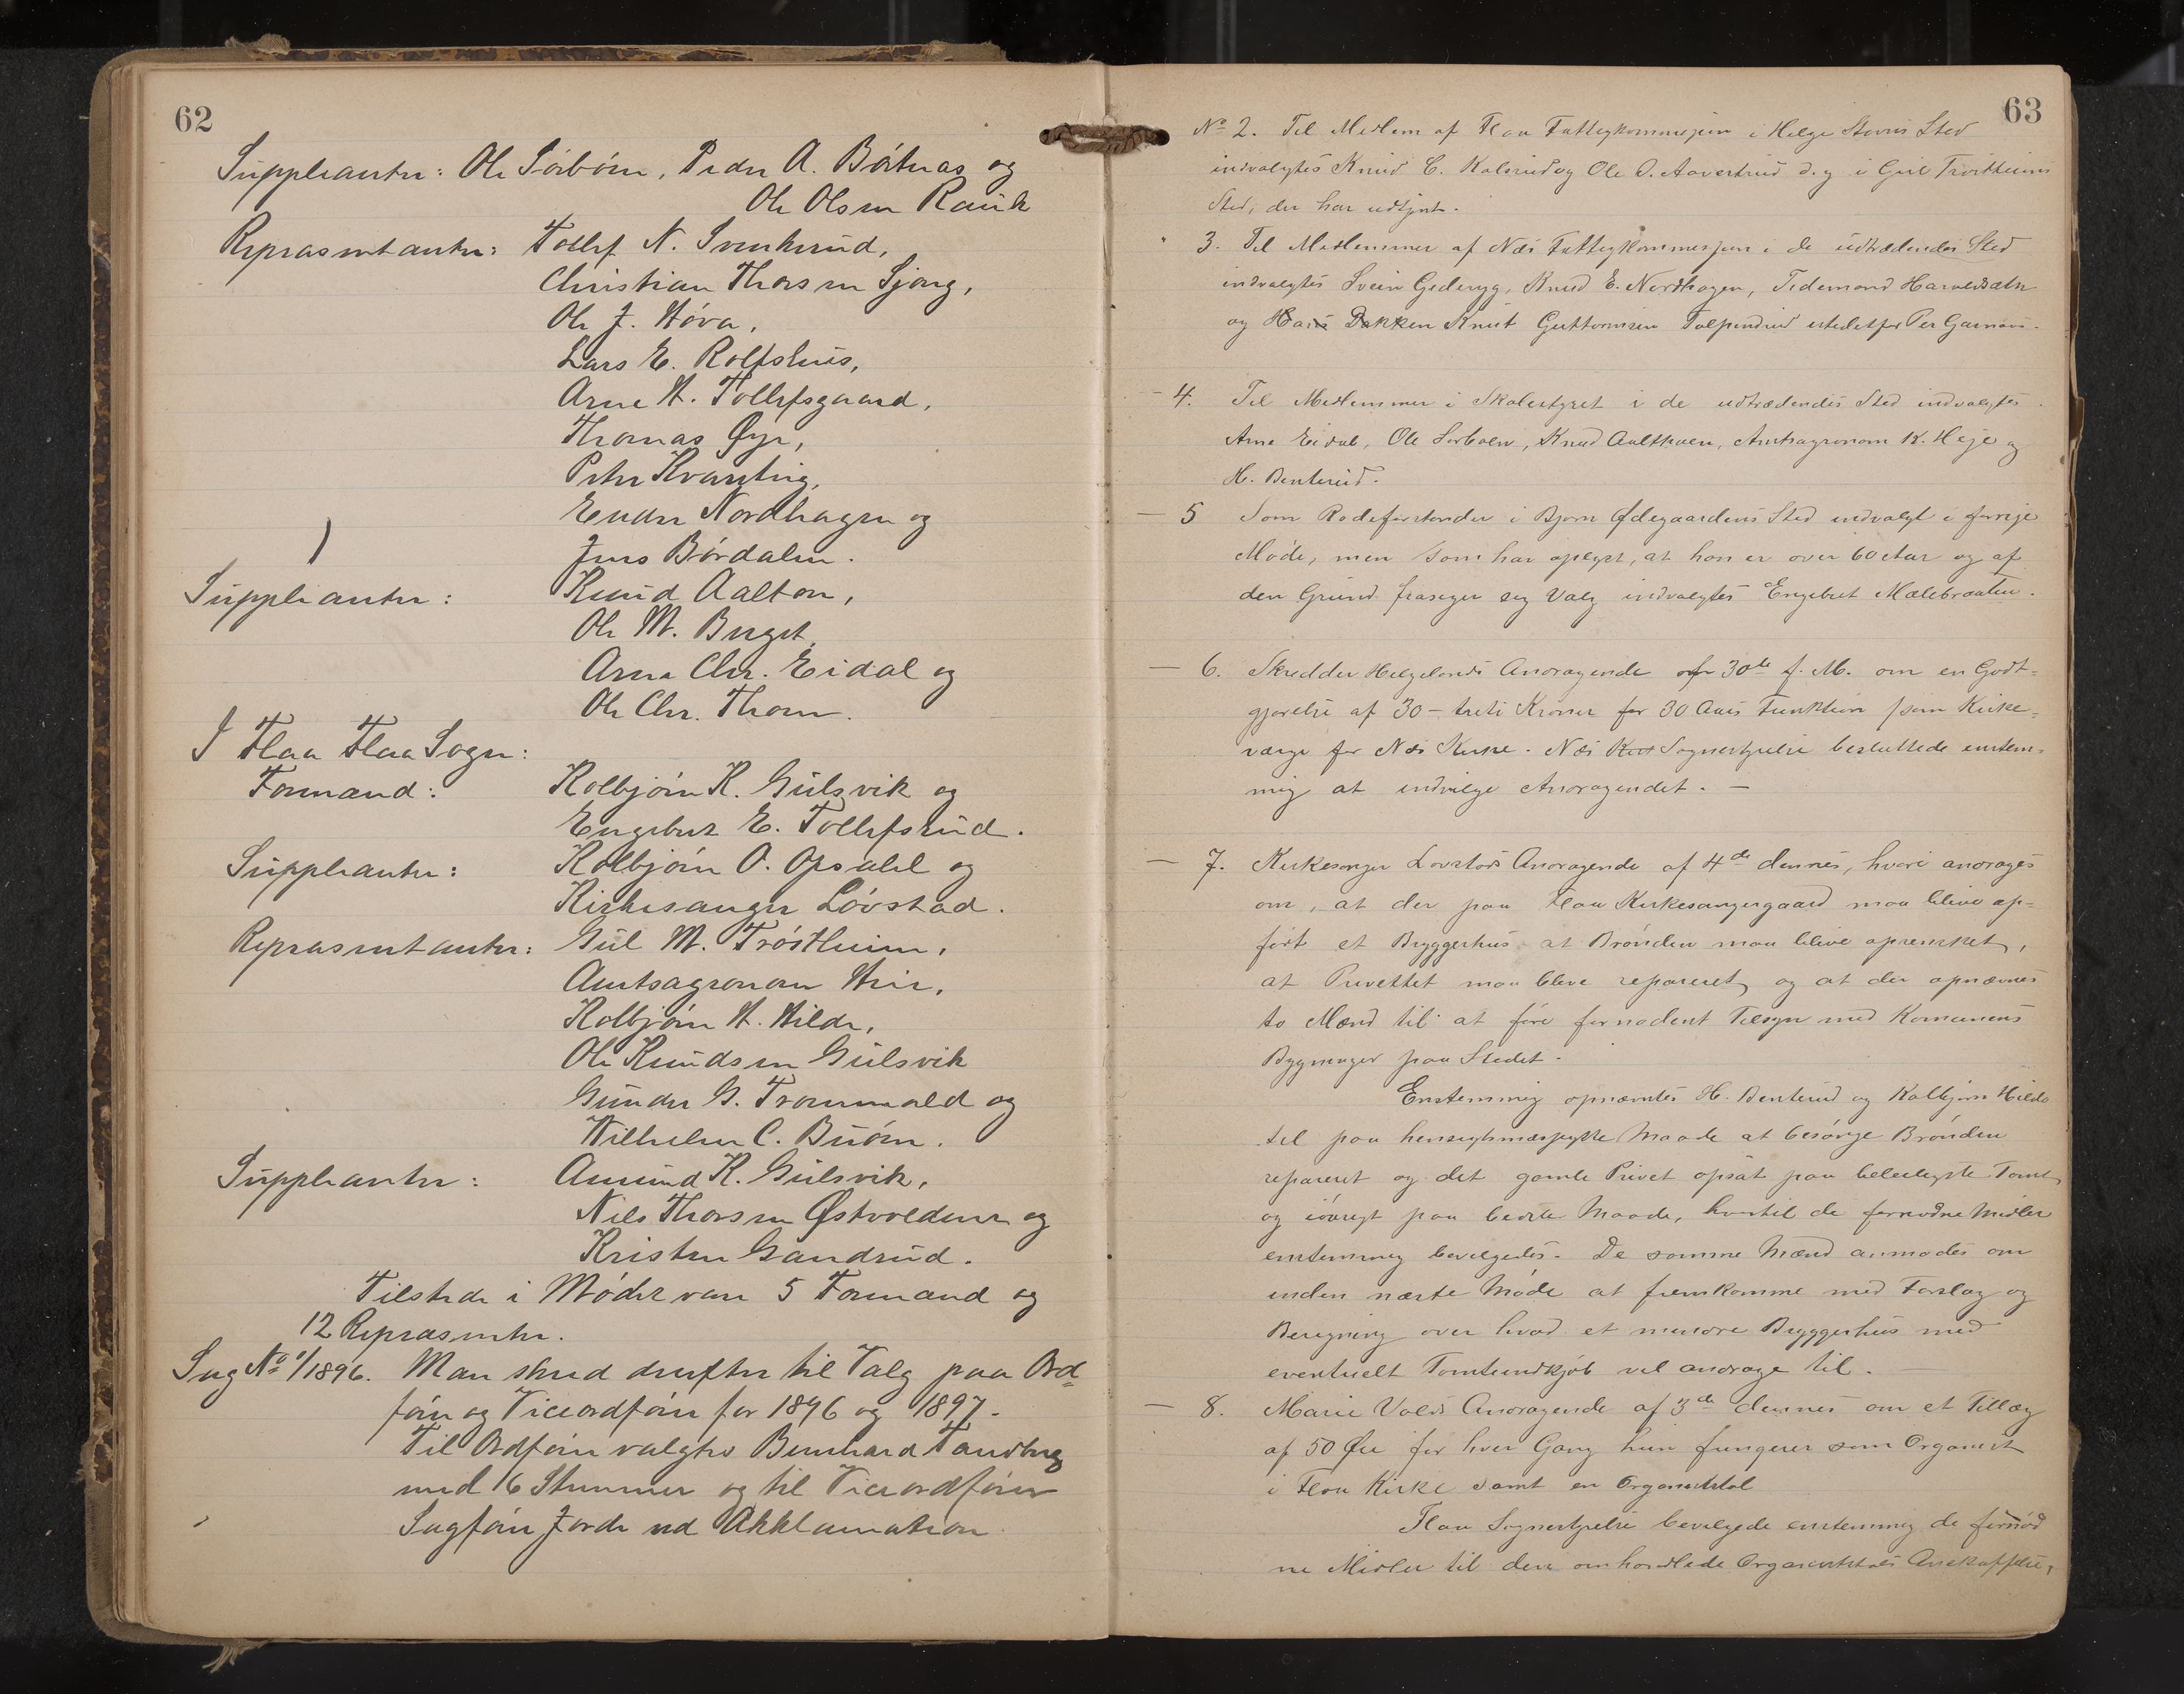 62
Suppleanter: Ole Sörböen, Peder A. Bötnas og
Ole Olsen Rauk
Repræsentanter: Tollef N. Svenkerud,
Christian Thorsen Sjong,
Ole J. Höva,
Lars E. Rolfshus,
Arne H. Tollefsgaard,
Thomas Øye,
Peter Kvarsting,
Endre Nordhagen og
Jens Bördalen.
Suppleanter: Knud Aalton,
Ole M. Berget,
Arne Chr. Eidal og
Ole Chr. Thoen.
I Flaa Flaa Sogn:
Formænd: Kolbjörn K. Gulsvik og
Engebret E. Tollefsrud.
Suppleanter: Kolbjörn O. Opsahl og
Kirkesanger Lövstad.
Repræsentanter: Gul M. Tröstheim,
Amtsagronom Heie,
Kolbjörn H. Hilde,
Ole Knudsen Gulsvik
Gunder G. Trommald og
Wilhelm C. Buöen.
Suppleanter: Amund K. Gulsvik,
Nils Thorsen Østvolden og
Kristen Gandrud.
Tilstede i Mödet vare 5 Formænd og
12 Repræsenter.
Sag No 1/1896. Man skred derefter til Valg paa Ord=
förer og Viceordförer for 1896 og 1897.
Til Ordförer valgtes Bernhard Tandberg
med 16 Stemmer og til Viceordförer
Sagförer Jorde ved Akklamation
63
No 2. Til Medlem af Flaa Fattigkommisjon i Helge Stavns Sted
indvalgtes Knud C. Kolsrud og Ole O. Aavestrud d.y i Gul Tröstheims
Sted, der har udtjent.
3. Til Medlemmer af Næs Fattigkommisjon i de udtrædendes Sted
indvalgtes Svein Gederyg, Knud E. Nordhagen, Tidemand Haraldsæth
og Hans Bakken Knut Guttormsen istedetfor Per Garnaas.
- 4. Til Medlemmer i Skolestyret i de udtrædendes Sted indvalgtes
Arne Eidal, Ole Sorboen, Knud Aalthoen, Amtsagronom K. Heje og
H. Benterud.
- 5 Som Rodeforstander i Bjorn Ødegaardens Sted indvalgt i forrige
Möde, men som har oplyst, at han er over 60 Aar og af
den Grund frasiger sig Valg indvalgtes Engebret Mælebraaten.
- 6. Skredder Helgelands Andragende af 30te f. M. om en Godt-
gjorelse af 30 - treti Kroner for 30 Aars Funktion som Kirke-
værge for Næs Kirke. Næs Sognestyrelse besluttede enstem-
mig at indvilge Andragendet. -
- 7. Kirkesanger Lovstads Andragende af 4de dennes, hvori andrages
om, at der paa Flaa Kirkesangergaard maa blive op-
fört et Bryggerhus at Brönden maa blive oprensket,
at Privettet maa bleve repareret, og at der opnævnes
to Mænd til at före fornodent Tilsyn med Komunens
Bygninger paa Stedet.
Enstemmig opnævntes H. Benterud og Kolbjörn Hilde
til paa hensigtsmæssigste Maade at besörge Brönden
repareret og det gamle Privet opsat paa beleiligste Tomt
og iövrigt paa bedste Maade, hvortil de fornodne Midler
enstemmig bevilgedes. De samme Mænd anmodes om
inden næste Möde at fremkomme med Forslag og
Beregning over hvad et mindre Bryggerhus med
eventuelt Tomteindkjöb vil andrage til.
- 8. Marie Volds Andragende af 3de dennes om et Tillæg
af 50 Øre for hver Gang hun fungerer som Organist
i Flaa Kirke samt en Organiststol
Flaa Sognestyrelse bevilgede enstemmig de fornöd
ne Midler til den omhandlede Organiststols Anskaffelse,